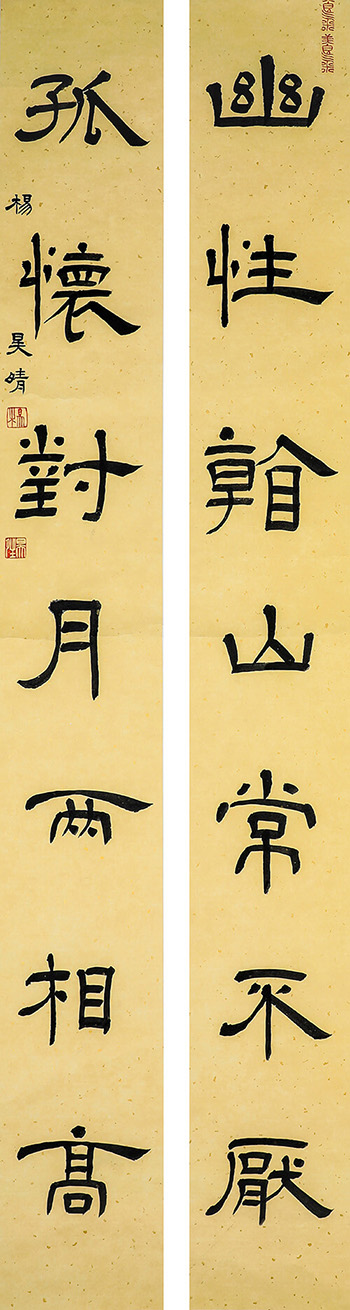 幽性看山常不厭
孤懷對月两相高
楊昊晴